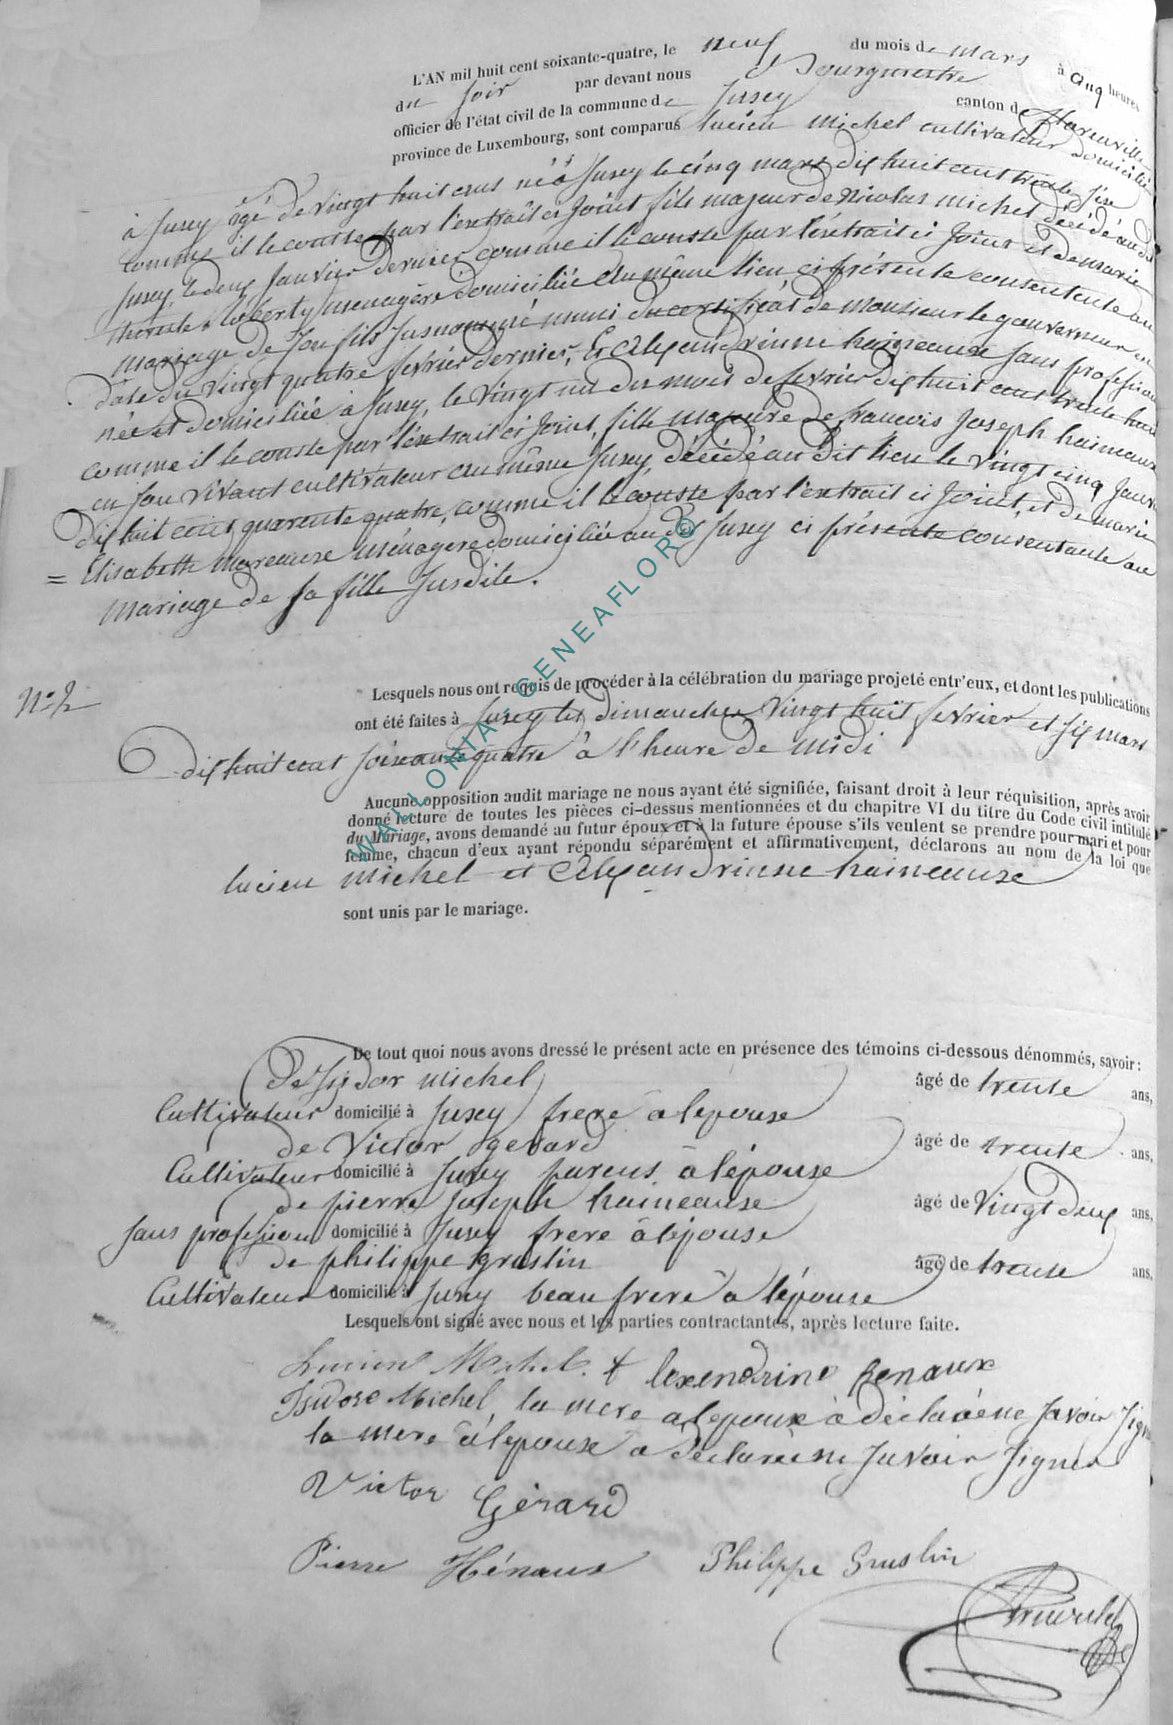 L'AN mil huit cent soixante-quatre, le neuf du mois de mars à cinq heures
du soir par devant nous Bourgmestre
officier de l'état civil de la commune de Jusey canton de
province de Luxembourg, sont comparus lucien michel cultivateur domicilié
à Jusey âgé de vingt huit ans né à Jusey le cinq mars dix huit cent trente six
comme il le conste par l'extrait ci joint fils majeur de Nicolas michel décédé au dit
Jusey, le deux Janvier dernier comme il le conste par l'extrait ci joint et de marie
ménagère domiciliée au même lieu ci présente consentente au
mariage de son fils susnommé muni du certificat de monsieur le gouverneur en
date du vingt quatre fevrier dernier, Et Alexandrinne haineause sans profession
née et domiciliée à Jusey, le vingt un du mois de fevrier dix huit cent trente huit
comme il le conste par l'extrait ci joint, fille majeure de francois Joseph haineause
en son vivant cultivateur au même Jusey, décédé au dit lieu le vingt cinq Janvier
dix huit cent quarente quatre, comme il le conste par l'extrait ci joint, et de marie
= Elisabeth mareause ménagère domiciliée au dit Jusey ci présente consentante au
mariage de sa fille susdite.
Lesquels nous ont requis de procéder à la célébration du mariage projeté entr'eux, et dont les publications
N° 2
ont été faites à Jusey les dimanches vingt huit fevrier et six mars
dix huit cent soixante quatre à l'heure de midi
Aucune opposition audit mariage ne nous ayant été signifiée, faisant droit à leur réquisition, après avoir
donné lecture de toutes les pièces ci-dessus mentionnées et du chapitre VI du titre du Code civil intitulé
du Mariage, avons demandé au futur époux et à la future épouse s'ils veulent se prendre pour mari et pour
femme, chacun d'eux ayant répondu séparément et affirmativement, déclarons au nom de la loi que
lucien michel et Alexandrinne haineause
sont unis par le mariage.
De tout quoi nous avons dressé le présent acte en présence des témoins ci-dessous dénommés, savoir :
De Isidor michel âgé de trente ans,
Cultivateur domicilié à Jusey frere à lepouse
de Victor gerard âgé de trente ans,
Cultivateur domicilié à Jusey parens à lépouse
de pierre Joseph haineause âgé de vingt deux ans,
sans profession domicilié à Jusey frere à lépouse
de philippe gruslin âgé de trente ans,
Cultivateur domicilié à Jusey beau frere à lépouse
Lesquels ont signé avec nous et les parties contractantes, après lecture faite.
Lucien Michel. + lexendrine henaux
Isidore Michel, la mere a lepoux a déclaré ne savoir signer
la mere à lepouse a déclaré ne savoir signer
Victor Gérard
Pierre Hénaux Philippe Gruslin
WALLONIA-GENEAFLOR©